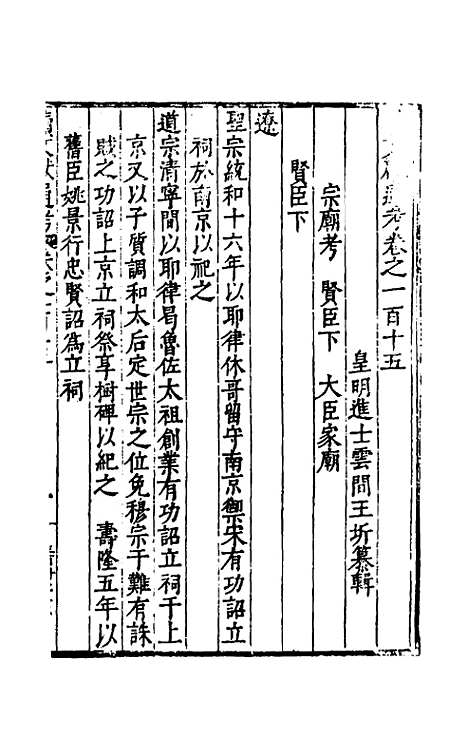 通考卷之一百十五
皇明進士雲間王圻纂輯
宗廟考　賢臣下　大臣家廟
賢臣下
遼
聖宗統和十六年以耶律休哥留守南京禦宋有功詔立
祠於南京以祀之
道宗清寧間以耶律曷魯佐太祖創業有功詔立祠于上
京又以子質調和太后定世宗之位免穆宗于難有誅
賊之功詔上京立祠祭享樹碑以紀之　壽隆五年以
舊臣姚景行忠賢詔為立祠
文獻通考